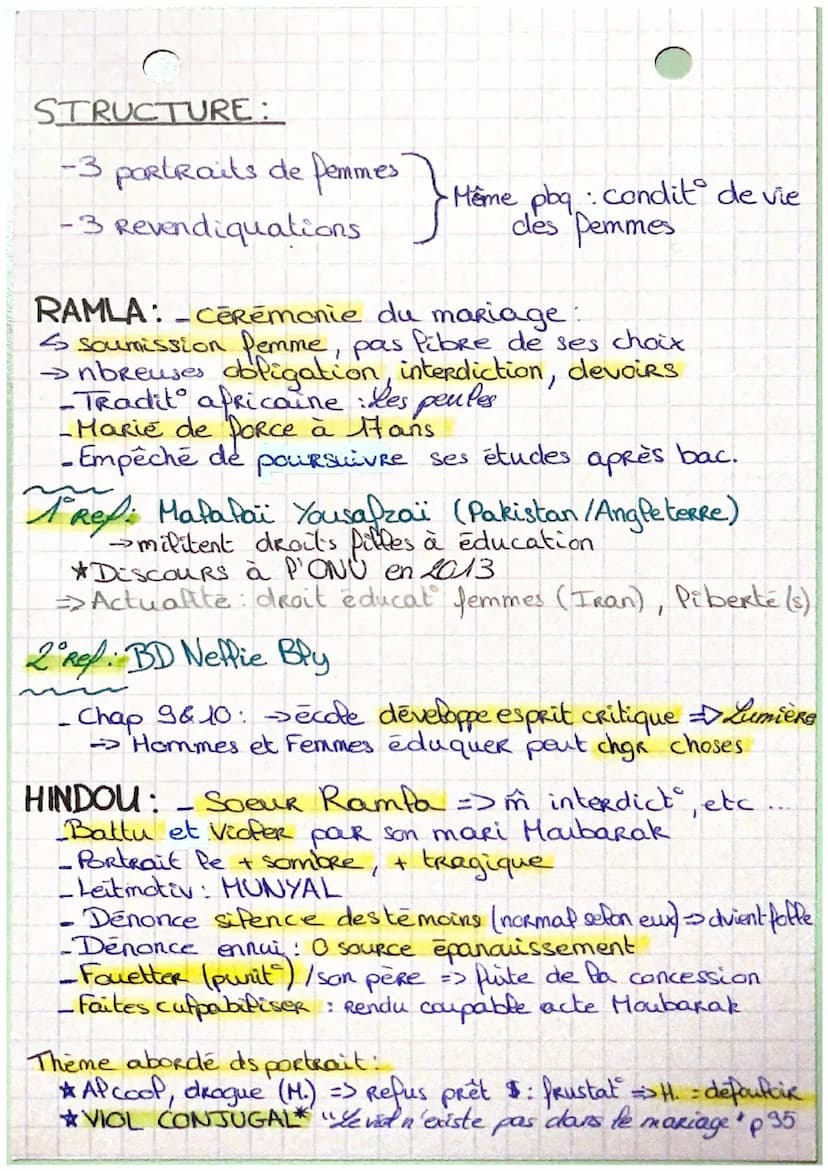 STRUCTURE :
-3 portraits de femmes
-3 Revendiquations
Même pbq : condit° de vie
des femmes
RAMLA : - CéRémonie du mariage :
↳ soumission femme, pas libre de ses choix
→ nbreuses obligation, interdiction, devoirs
- Tradit° africaine : les peules
- Marié de force à 17 ans
- Empêché de poursuivre ses études après bac.
1° Ref : Malalaï Yousafzaï (Pakistan/Angleterre)
→ militent droits filles à éducation
* Discours à l'ONU en 2013
=> Actualité : droit éducat° femmes (Iran), liberté(s)
2° Ref : BD Nellie Bly
- Chap 9&10 : → école développe esprit critique => Lumière
→ Hommes et Femmes éduquer peut chgr choses
HINDOU : - Soeur Ramla => m̂ interdict°, etc ...
- Battu et Violer par son mari Moubarak
- Portrait le + sombre, + tragique
- Leitmotiv : MUNYAL
- Dénonce silence des témoins (normal selon eux) => dvient folle
- Dénonce ennui : 0 source épanouissement
- Fouetter (punit°) /son père => fuite de la concession
- Faites culpabiliser : Rendu coupable acte Moubarak
Thème abordé ds portrait :
* Alcool, drogue (M.) => Refus prêt $ : frustat° => H. = défouloir
* VIOL CONJUGAL* "Le viol n'existe pas dans le mariage" p 95